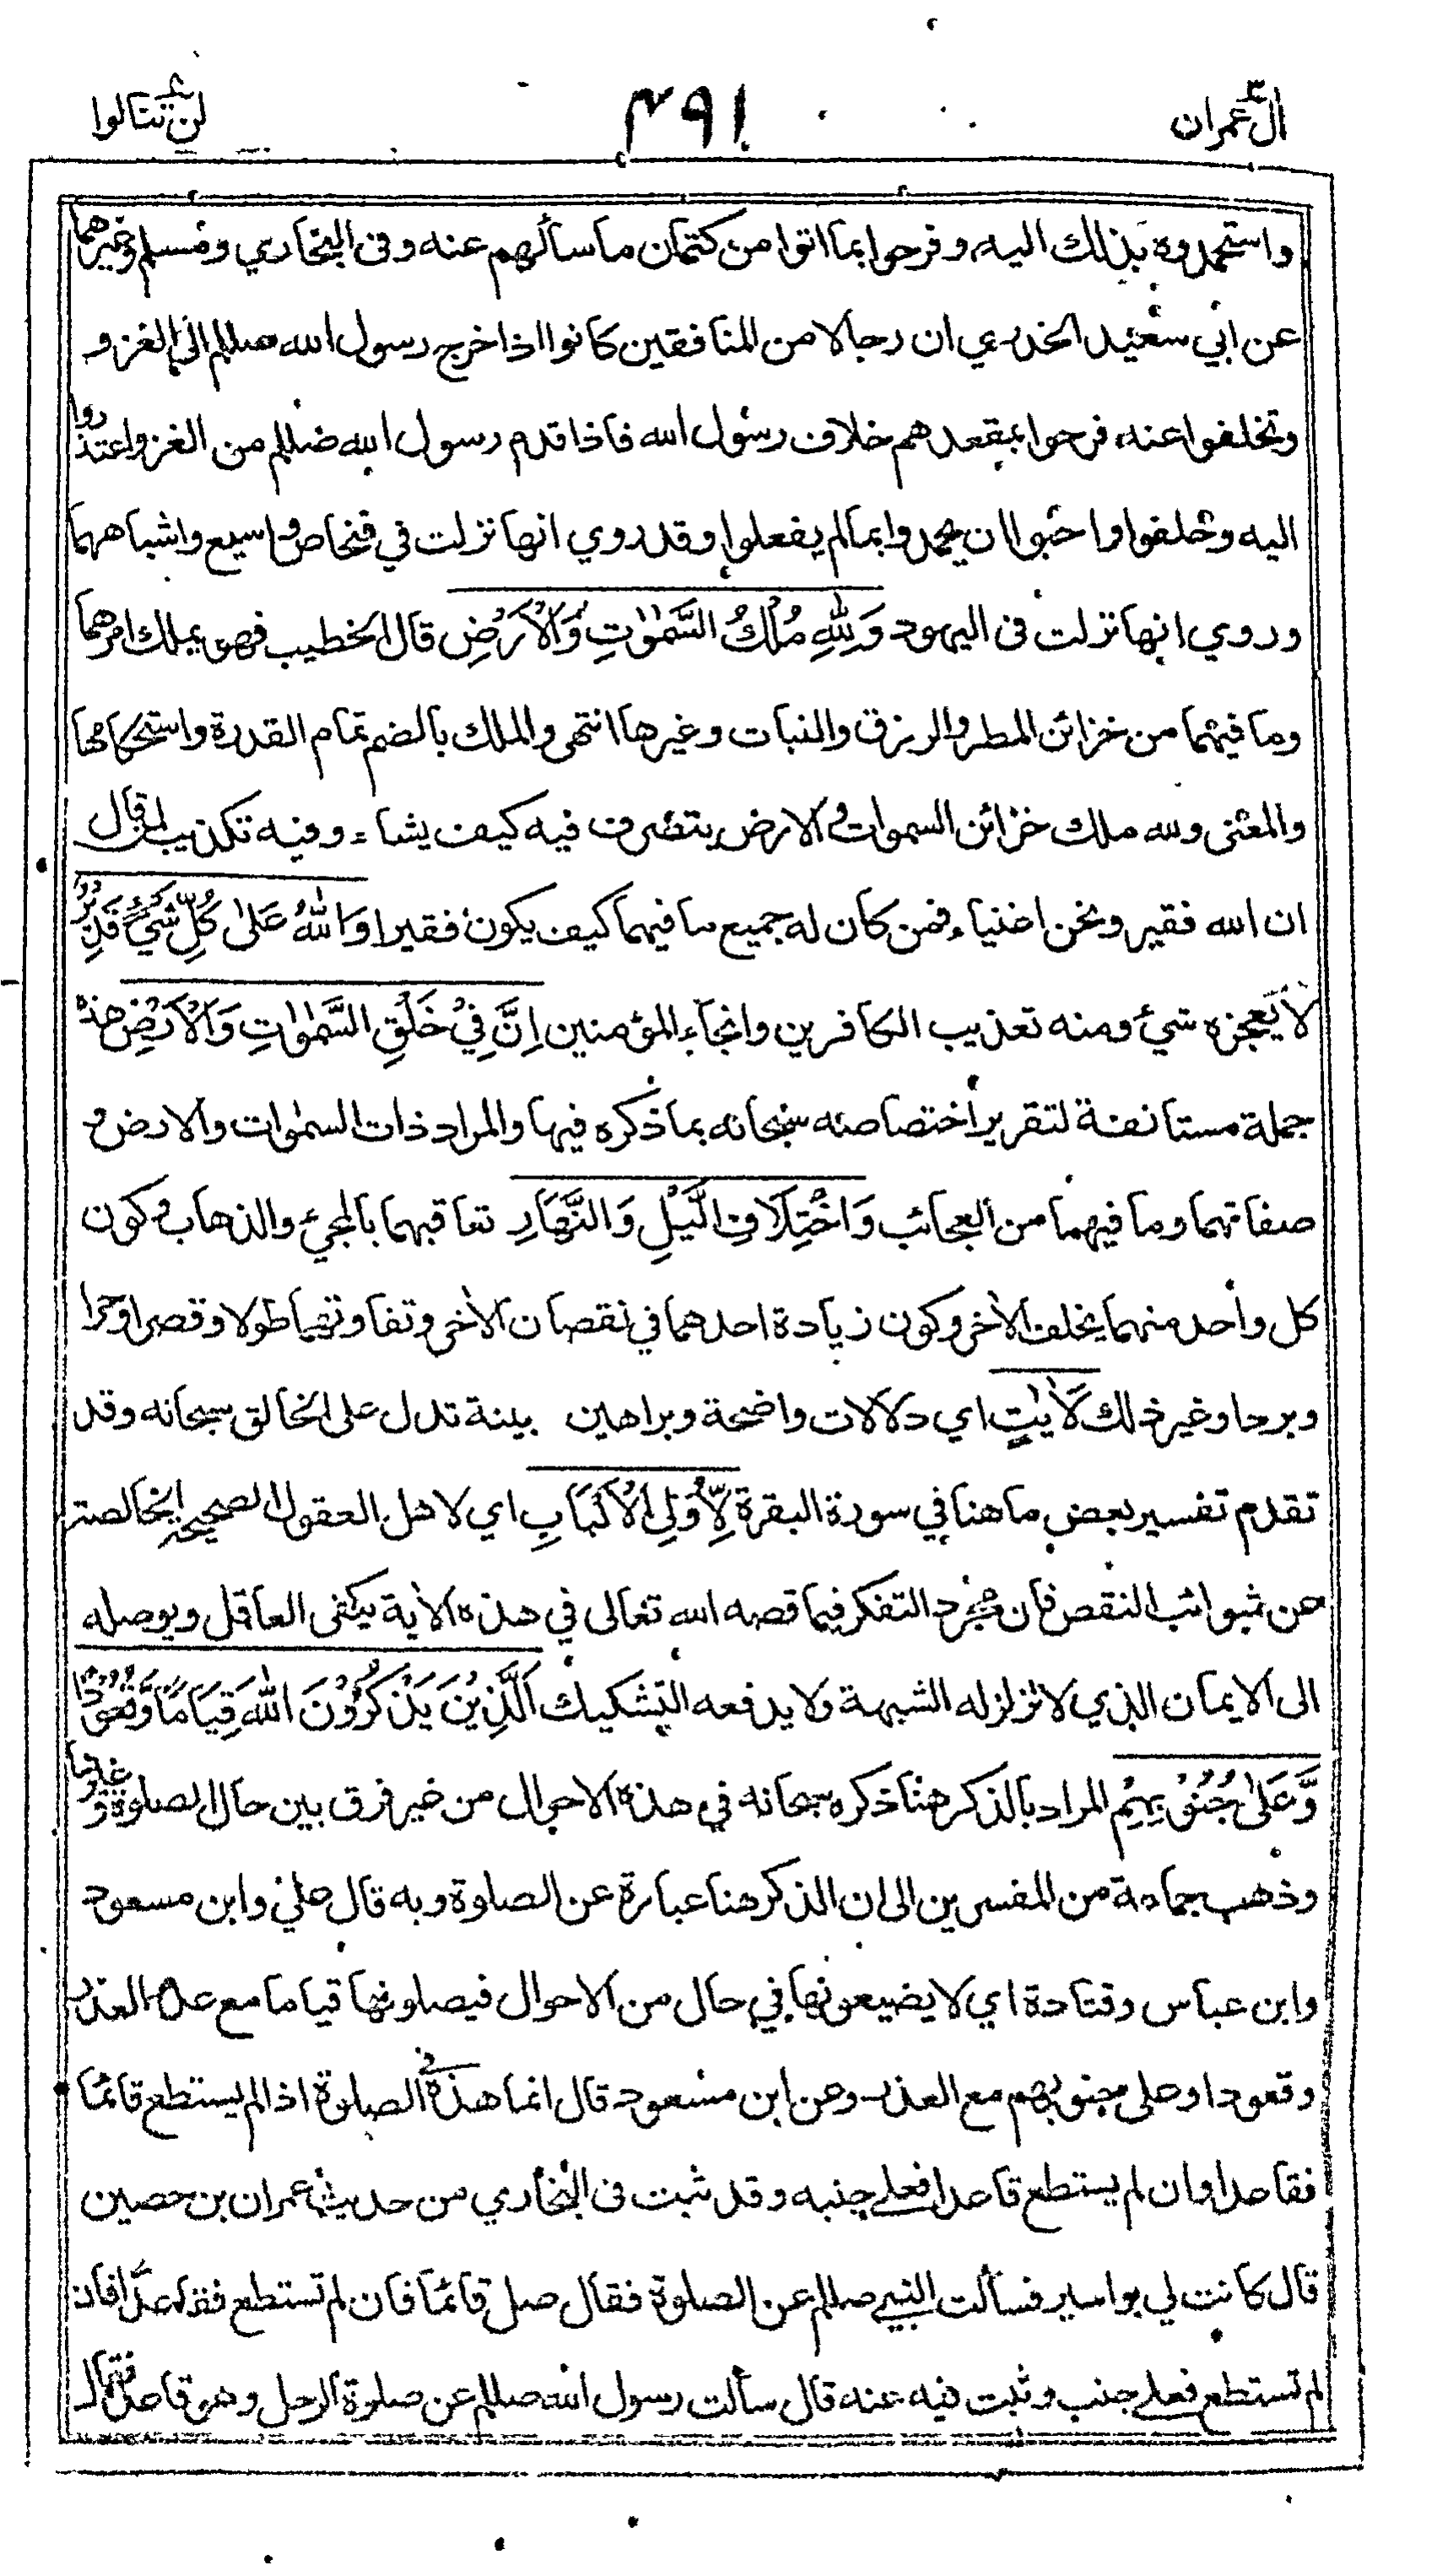 اٰل عمران ٣
٤٩١
لن تنالوا ٤
واستحمدوه بذلك اليه وفرحوا بما اتوا من كتمان ما سألهم عنه وفى البخاري ومسلم وغيرهما
عن ابي سعيد الخدري ان رجالا من المنافقين كانوا اذا خرج رسول الله صللم الى الغزو
وتخلفوا عنه فرحوا بمقعدهم خلاف رسول الله فاذا قدم رسول الله صللم من الغزو اعتذروا
اليه وحلفوا واحبوا ان يحمدوا بما لم يفعلوا وقد روي انها نزلت في فنحاص واسيع واشباههما
وروي انها نزلت فى اليهود وَلِلّٰهِ مُلْكُ السَّمٰوٰتِ وَالْاَرْضِ قال الخطيب فهو يملك امرهما
وما فيهما من خزائن المطر والرزق والنبات وغيرها انتهى والملك بالضم تمام القدرة واستحكامها
والمعنى ولله ملك خزائن السموات والارض يتصرف فيه كيف يشاء وفيه تكذيب لمن قال
ان الله فقير ونحن اغنياء فمن كان له جميع ما فيهما كيف يكون فقيرا وَاللّٰهُ عَلٰى كُلِّ شَيْءٍ قَدِيْرٌ
لا يعجزه شيء ومنه تعذيب الكافرين وانجاء المؤمنين اِنَّ فِيْ خَلْقِ السَّمٰوٰتِ وَالْاَرْضِ هذه
جملة مستانفة لتقرير اختصاصه سبحانه بما ذكره فيها والمراد ذات السمٰوات والارض و
صفاتهما وما فيهما من العجائب وَاخْتِلَافِ الَّيْلِ وَالنَّهَارِ تعاقبهما بالمجيء والذهاب وكون
كل واحد منهما يخلف الاٰخر وكون زيادة احدهما في نقصان الاٰخر وتفاوتهما طولا وقصرا وحرا
وبردا وغير ذلك لَاٰيٰتٍ اي دلالات واضحة وبراهين بينة تدل على الخالق سبحانه وقد
تقدم تفسير بعض ما هنا في سورة البقرة لِّاُولِى الْاَلْبَابِ اي لاهل العقول الصحيحة الخالصة
عن شوائب النقص فان مجرد التفكر فيما قصه الله تعالى في هذه الاٰية يكفى العاقل ويوصله
الى الايمان الذي لا تزلزله الشبهة ولا يدفعه التشكيك الَّذِيْنَ يَذْكُرُوْنَ اللّٰهَ قِيَامًا وَّقُعُوْدًا
وَّعَلٰى جُنُوْبِهِمْ المراد بالذكر هنا ذكره سبحانه في هذه الاحوال من غير فرق بين حال الصلوة وغيرها
وذهب جماعة من المفسرين الى ان الذكر هنا عبارة عن الصلوة وبه قال علي وابن مسعود
وابن عباس وقتادة اي لا يضيعونها في حال من الاحوال فيصلونها قياما مع عدم العذر
وقعودا وعلى جنوبهم مع العذر وعن ابن مسعود قال انما هذه في الصلوة اذا لم يستطع قائما
فقاعدا وان لم يستطع قاعدا فعلى جنبه وقد ثبت فى البخاري من حديث عمران بن حصين
قال كانت لي بواسير فسألت النبي صللم عن الصلوة فقال صل قائما فان لم تستطع فقاعدا فان
لم تستطع فعلى جنب وثبت فيه عنه قال سألت رسول الله صللم عن صلوة الرجل وهو قاعد فقال